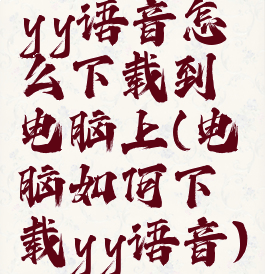 yy语音怎
么下载到
电脑上(电
脑如何下
载yy语音)